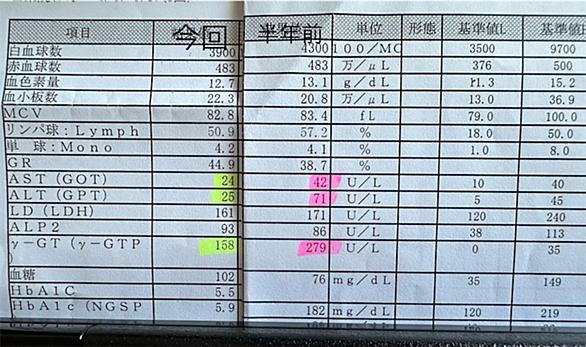 項目 今回 半年前 単位 形態 基準値L 基準値H
白血球数 3900 4300 100/MC 3500 9700
赤血球数 483 483 万/μL 376 500
血色素量 12.7 13.1 g/dL 11.3 15.2
血小板数 22.3 20.8 万/μL 13.0 36.9
MCV 82.8 83.4 fL 79.0 100.0
リンパ球:Lymph 50.9 57.2 % 18.0 50.0
単 球:Mono 4.2 4.1 % 1.0 8.0
GR 44.9 38.7 %
AST(GOT) 24 42 U/L 10 40
ALT(GPT) 25 71 U/L 5 45
LD(LDH) 161 171 U/L 120 240
ALP2 93 86 U/L 38 113
γ-GT(γ-GTP 158 279 U/L 0 35
)
血糖 102 76 mg/dL 35 149
HbA1C 5.5
HbA1c(NGSP 5.9 182 mg/dL 120 219